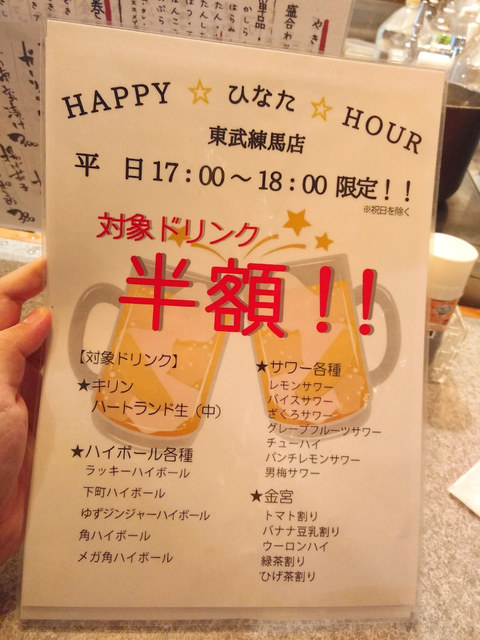 HAPPY ☆ ひなた ☆ HOUR
東武練馬店
平 日 17:00～18:00 限定!!
※祝日を除く
対象ドリンク
半額!!
【対象ドリンク】
★キリン
ハートランド生（中）
★ハイボール各種
ラッキーハイボール
下町ハイボール
ゆずジンジャーハイボール
角ハイボール
メガ角ハイボール
★サワー各種
レモンサワー
バイスサワー
ざくろサワー
グレープフルーツサワー
チューハイ
パンチレモンサワー
男梅サワー
★金宮
トマト割り
バナナ豆乳割り
ウーロンハイ
緑茶割り
ひげ茶割り